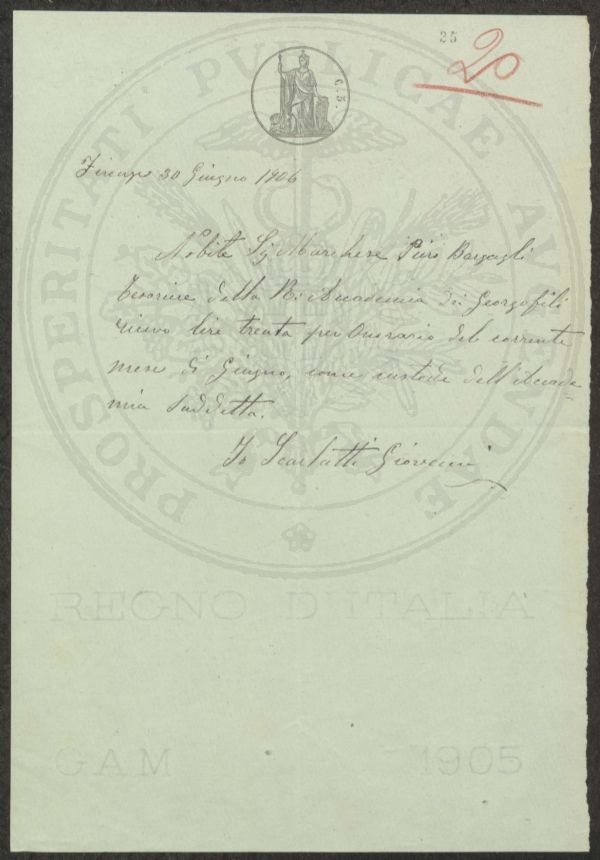 25
20
C. 5.
PROSPERITATI PUBLICAE AUGENDAE
Firenze 30 Giugno 1906
Nobile Sig Marchese Piero Bargagli
Tesoriere della R. Accademia dei Georgofili
ricevo lire trenta per Onorario del corrente
mese di Giugno, come custode dell'Accade-
mia Suddetta.
Io Scarlatti Giovanni
REGNO D'ITALIA
GAM 1905